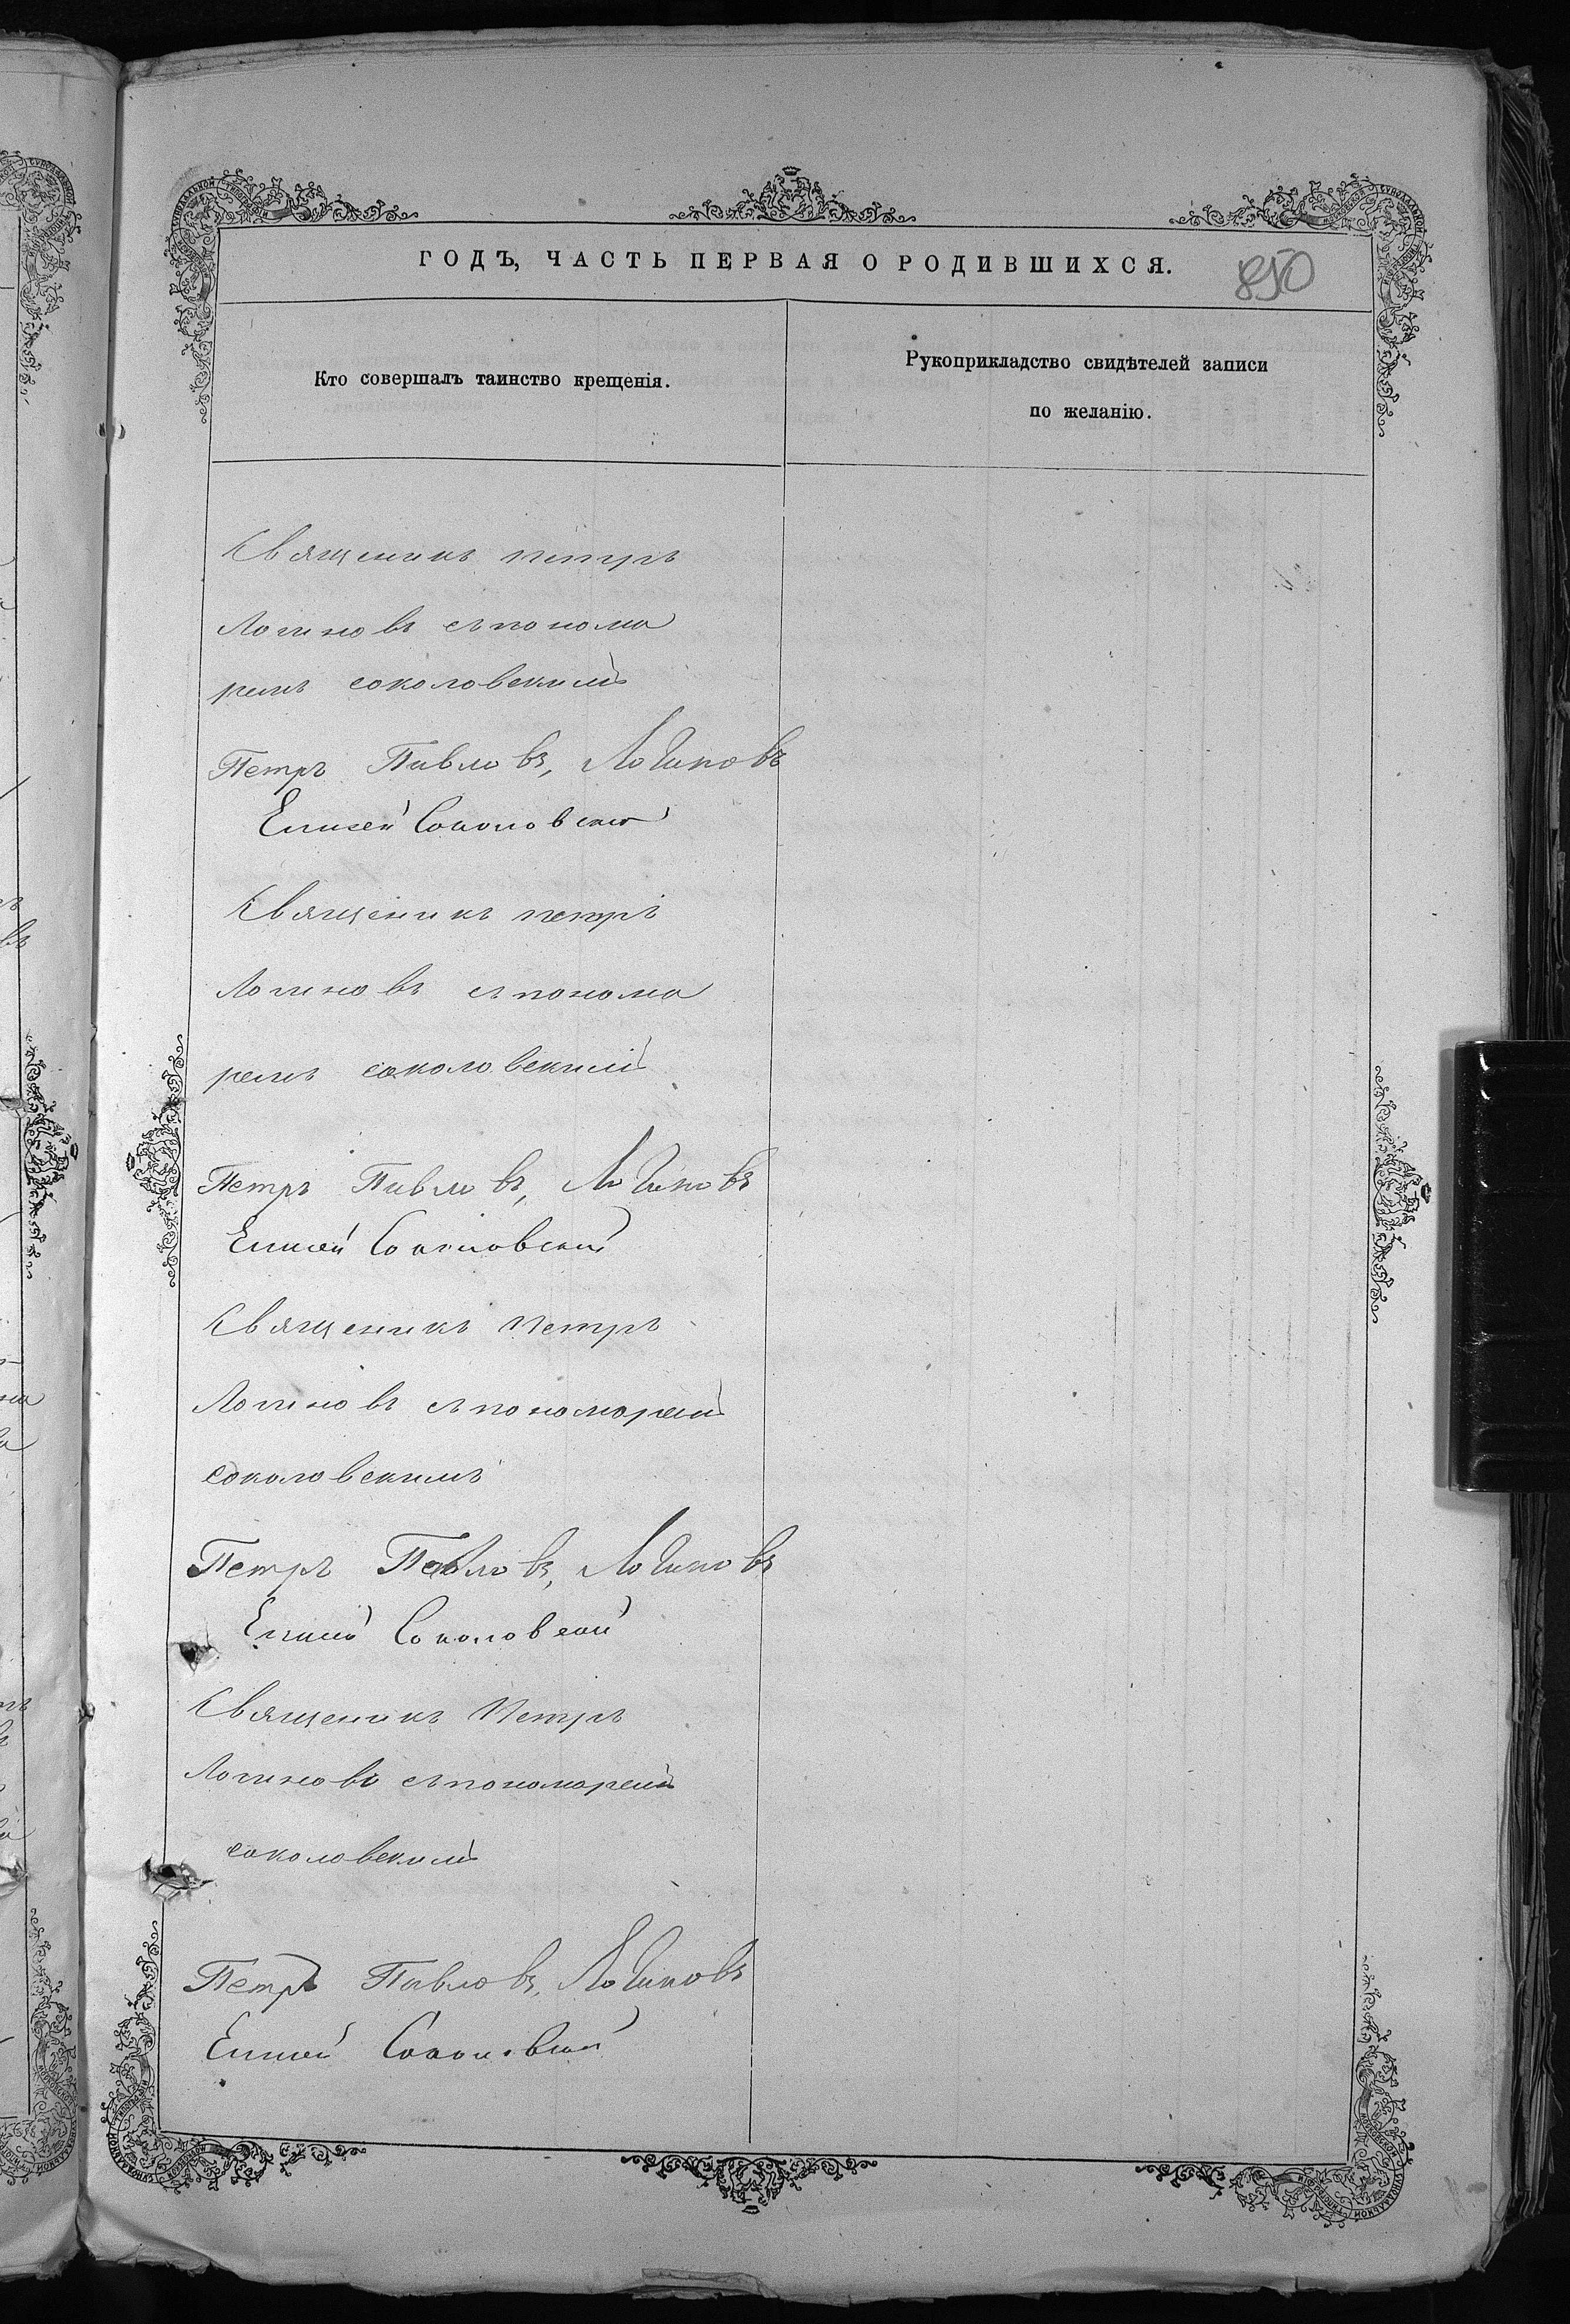 ГОДЪ, ЧАСТЬ ПЕРВАЯ О РОДИВШИХСЯ.
850
Кто совершалъ таинство крещенія.
Рукоприкладство свидѣтелей записи
по желанію.
Священикъ петръ
Логиновъ съ понома
ремъ соколовскимъ
Петръ Павловъ, Логиновъ
Елисей Соколовской
Священикъ петръ
Логиновъ съ понома
ремъ соколовскимъ
Петръ Павловъ, Логиновъ
Елисей Соколовский
Священикъ Петръ
Логиновъ съ пономаремъ
соколовскимъ
Петръ Павловъ, Логиновъ
Елисей Соколовской
Священикъ Петръ
Логиновъ съ пономаремъ
соколовскимъ
Петръ Павловъ, Логиновъ
Елисей Соколовской